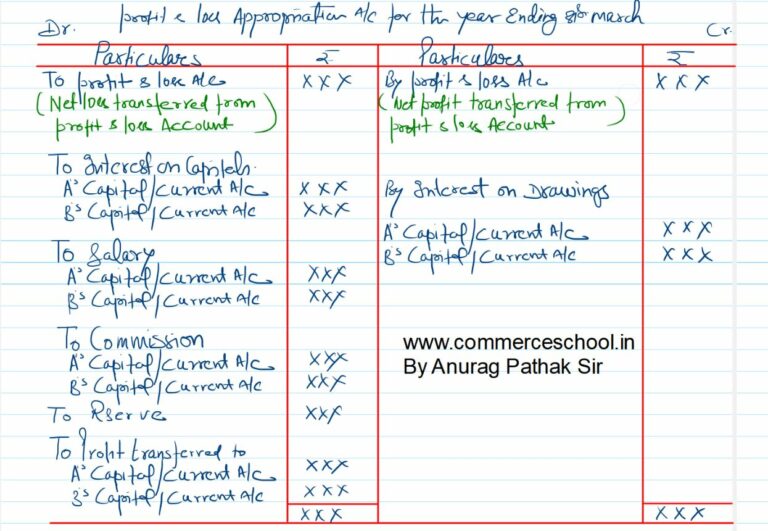 profit & loss Appropriation A/c for the year Ending march
Dr. Cr.
Particulars ₹ Particulars ₹
To profit & loss A/c XXX By profit & loss A/c XXX
(Net loss transferred from (Net profit transferred from
profit & loss Account) profit & loss Account)
To Interest on Capitals.
A's Capital/Current A/c XXX By Interest on Drawings
B's Capital/Current A/c XXX
A's Capital/Current A/c XXX
To Salary B's Capital/Current A/c XXX
A's Capital/Current A/c XXX
B's Capital/Current A/c XXX
To Commission www.commerceschool.in
A's Capital/Current A/c XXX By Anurag Pathak Sir
B's Capital/Current A/c XXX
To Rserve XXX
To Profit transferred to
A's Capital/Current A/c XXX
B's Capital/Current A/c XXX
XXX XXX